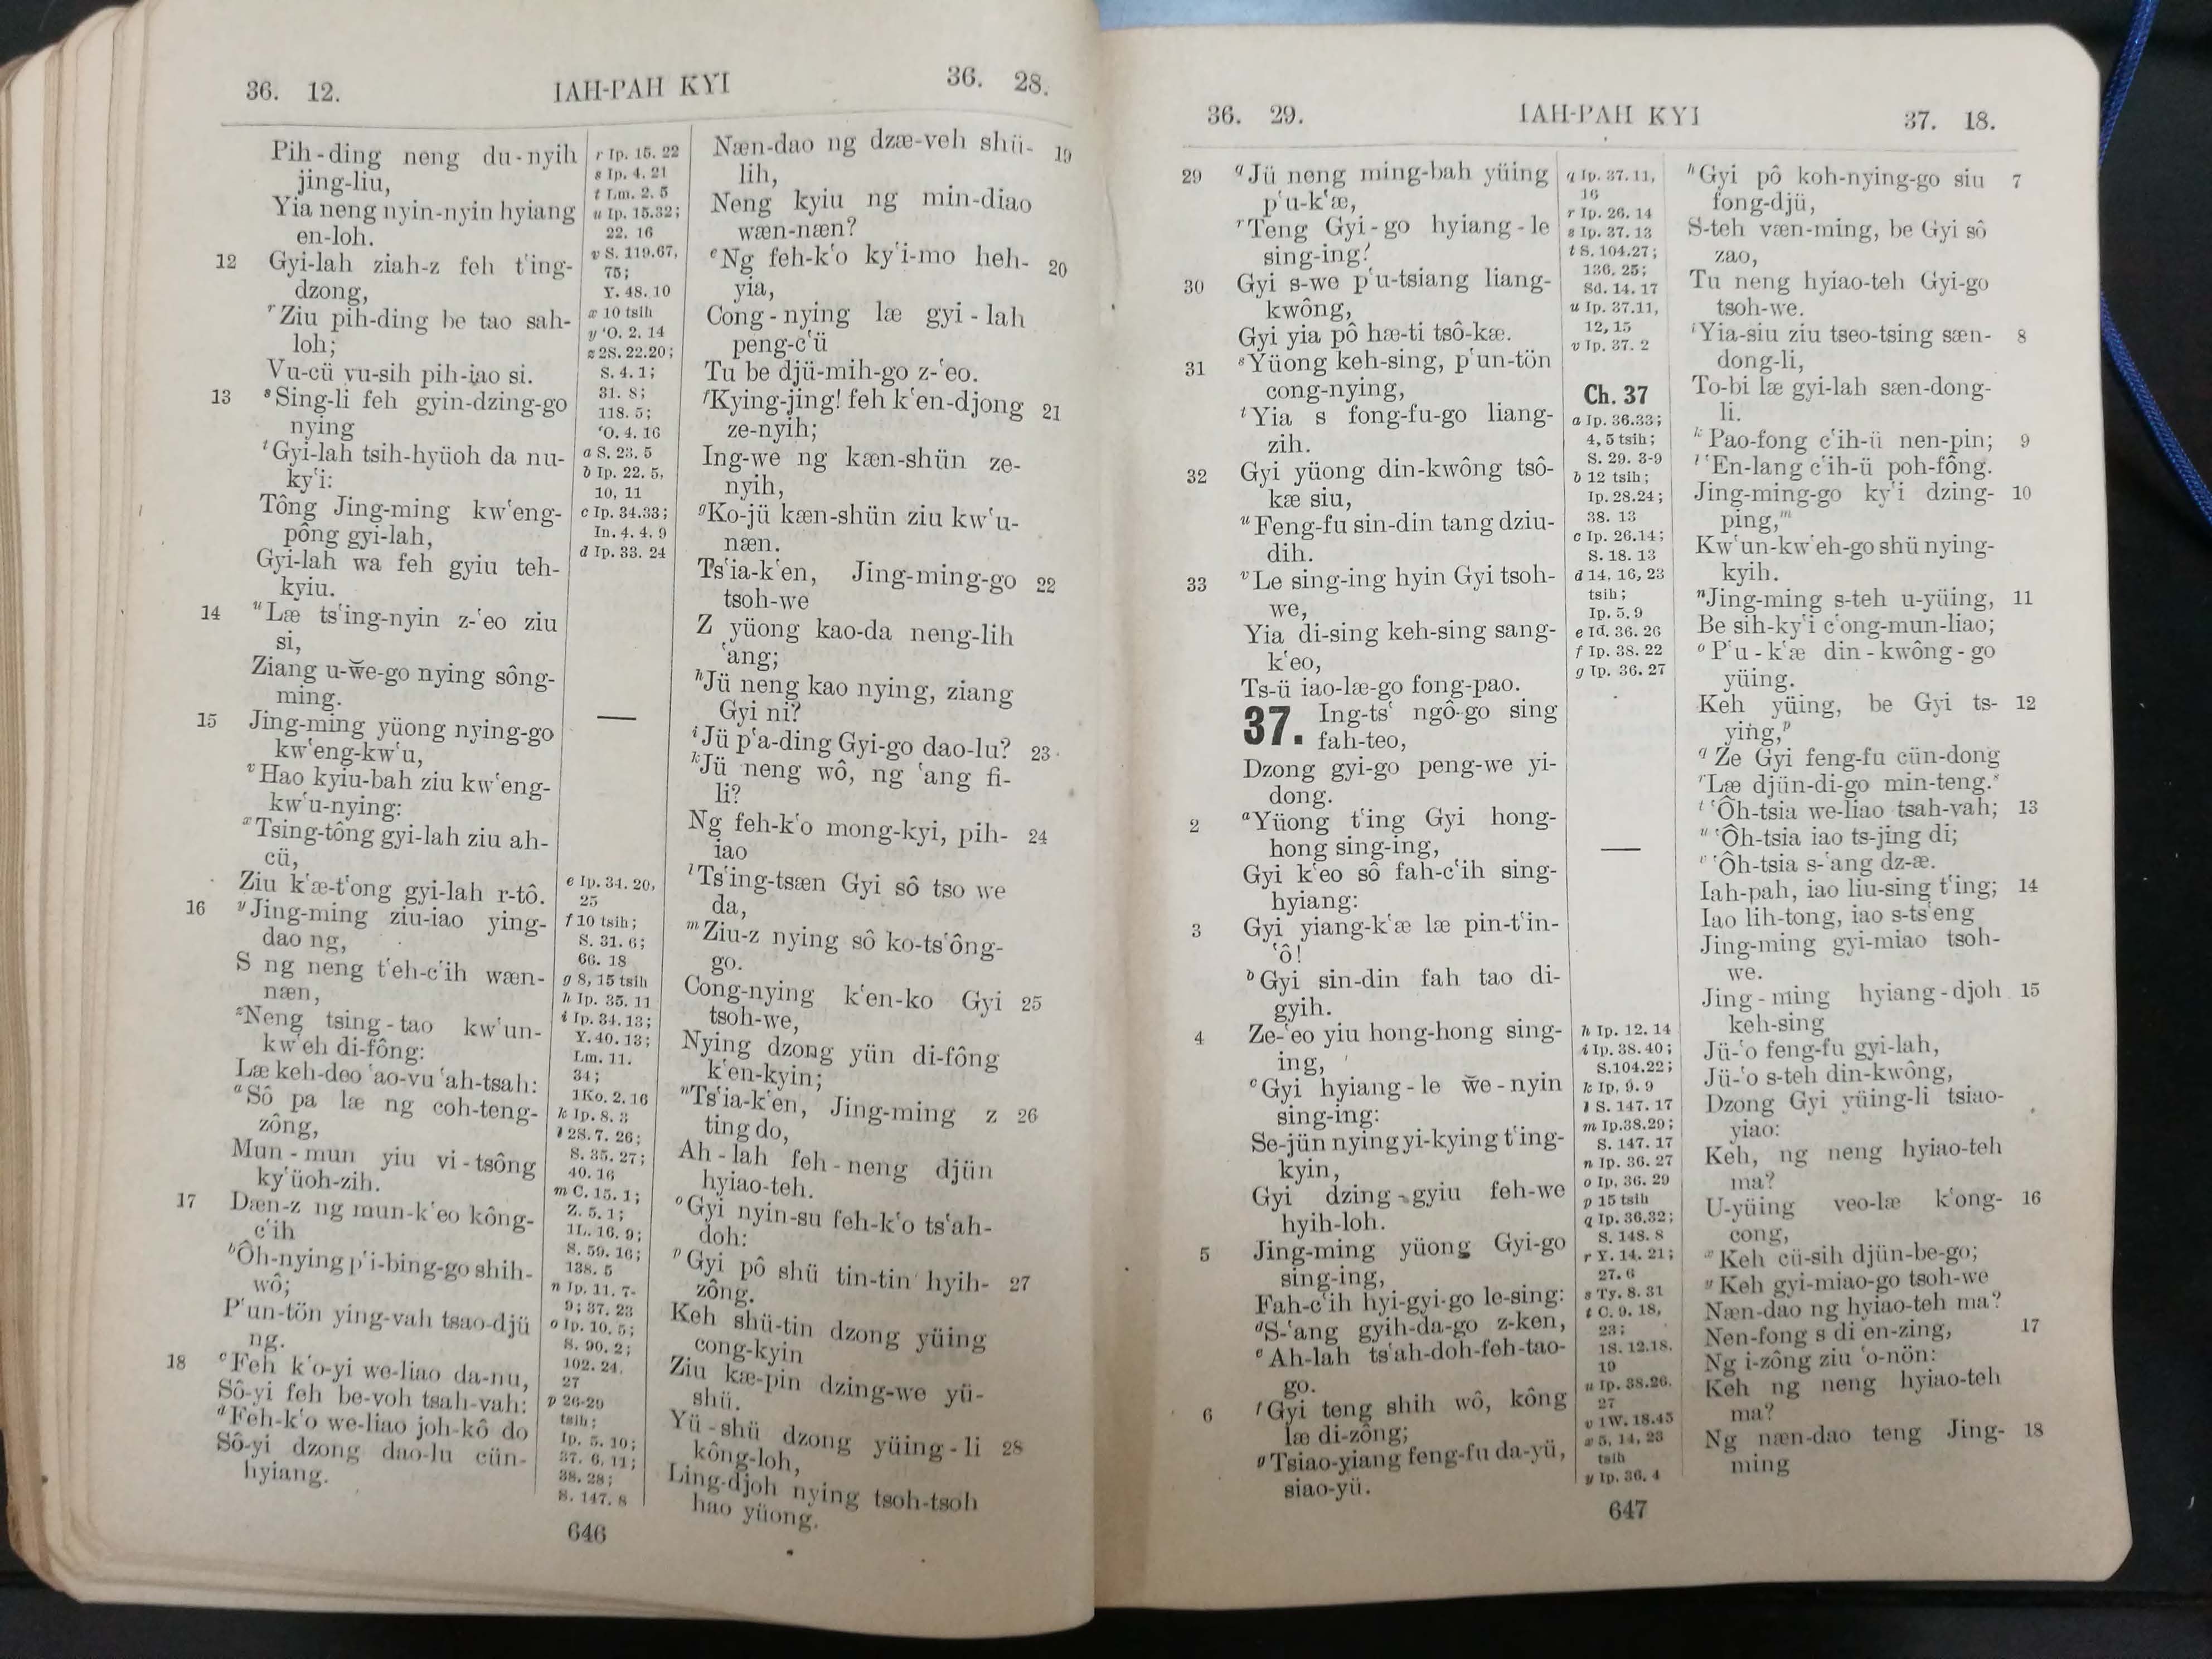 36. 12. IAH-PAH KYI 36. 28.
Pih-ding neng du-nyih
jing-liu,
Yia neng nyin-nyin hyiang
en-loh.
12 Gyi-lah ziah-z feh tʻing-
dzong,
r Ziu pih-ding be tao sah-
loh;
Vu-cü vu-sih pih-iao si.
13 s Sing-li feh gyin-dzing-go
nying
t Gyi-lah tsih-hyüoh da nu-
kyʻi:
Tông Jing-ming kwʻeng-
pông gyi-lah,
Gyi-lah wa feh gyiu teh-
kyiu.
14 u Læ tsʻing-nyin z-ʻeo ziu
si,
Ziang u-w̆e-go nying sông-
ming.
15 Jing-ming yüong nying-go
kwʻeng-kwʻu,
v Hao kyiu-bah ziu kwʻeng-
kwʻu-nying:
x Tsing-tông gyi-lah ziu ah-
cü,
Ziu kʻæ-tʻong gyi-lah r-tô.
16 y Jing-ming ziu-iao ying-
dao ng,
S ng neng tʻeh-cʻih wæn-
næn,
z Neng tsing-tao kwʻun-
kwʻeh di-fông:
Læ keh-deo ʻao-vu ʻah-tsah:
a Sô pa læ ng coh-teng-
zông,
Mun-mun yiu vi-tsông
kyʻüoh-zih.
17 Dæn-z ng mun-kʻeo kông-
cʻih
b Ôh-nying pʻi-bing-go shih-
wô;
Pʻun-tön ying-vah tsao-djü
ng.
18 c Feh kʻo-yi we-liao da-nu,
Sô-yi feh be-voh tsah-vah:
d Feh-kʻo we-liao joh-kô do
Sô-yi dzong dao-lu cün-
hyiang.
r Ip. 15. 22
s Ip. 4. 21
t Lm. 2. 5
u Ip. 15.32;
22. 16
v S. 119.67,
75;
Y. 48. 10
x 10 tsih
y ʻO. 2. 14
z 2S. 22.20;
S. 4. 1;
31. 8;
118. 5;
ʻO. 4. 16
a S. 23. 5
b Ip. 22. 5,
10, 11
c Ip. 34.33;
In. 4. 4. 9
d Ip. 33. 24
e Ip. 34. 20,
25
f 10 tsih;
S. 31. 6;
66. 18
g 8, 15 tsih
h Ip. 35. 11
i Ip. 34. 13;
Y. 40. 13;
Lm. 11.
34;
1Ko. 2. 16
k Ip. 8. 3
l 2S. 7. 26;
S. 35. 27;
40. 16
m C. 15. 1;
Z. 5. 1;
1L. 16. 9;
S. 59. 16;
138. 5
n Ip. 11. 7-
9; 37. 23
o Ip. 10. 5;
S. 90. 2;
102. 24,
27
p 26-29
tsih;
Ip. 5. 10;
37. 6, 11;
38. 28;
S. 147. 8
Næn-dao ng dzæ-veh shü- 19
lih,
Neng kyiu ng min-diao
wæn-næn?
e Ng feh-kʻo kyʻi-mo heh- 20
yia,
Cong-nying læ gyi-lah
peng-cʻü
Tu be djü-mih-go z-ʻeo.
f Kying-jing! feh kʻen-djong 21
ze-nyih;
Ing-we ng kæn-shün ze-
nyih,
g Ko-jü kæn-shün ziu kwʻu-
næn.
Tsʻia-kʻen, Jing-ming-go 22
tsoh-we
Z yüong kao-da neng-lih
ʻang;
h Jü neng kao nying, ziang
Gyi ni?
i Jü pʻa-ding Gyi-go dao-lu? 23
k Jü neng wô, ng ʻang fi-
li?
Ng feh-kʻo mong-kyi, pih- 24
iao
l Tsʻing-tsæn Gyi sô tso we
da,
m Ziu-z nying sô ko-tsʻông-
go.
Cong-nying kʻen-ko Gyi 25
tsoh-we,
Nying dzong yün di-fông
kʻen-kyin;
n Tsʻia-kʻen, Jing-ming z 26
ting do,
Ah-lah feh-neng djün
hyiao-teh.
o Gyi nyin-su feh-kʻo tsʻah-
doh:
p Gyi pô shü tin-tin hyih- 27
zông.
Keh shü-tin dzong yüing
cong-kyin
Ziu kæ-pin dzing-we yü-
shü.
Yü-shü dzong yüing-li 28
kông-loh,
Ling-djoh nying tsoh-tsoh
hao yüong.
646
36. 29. IAH-PAH KYI 37. 18.
29 q Jü neng ming-bah yüing
pʻu-kʻæ,
r Teng Gyi-go hyiang-le
sing-ing?
30 Gyi s-we pʻu-tsiang liang-
kwông,
Gyi yia pô hæ-ti tsô-kæ.
31 s Yüong keh-sing, pʻun-tön
cong-nying,
t Yia s fong-fu-go liang-
zih.
32 Gyi yüong din-kwông tsô-
kæ siu,
u Feng-fu sin-din tang dziu-
dih.
33 v Le sing-ing hyin Gyi tsoh-
we,
Yia di-sing keh-sing sang-
kʻeo,
Ts-ü iao-læ-go fong-pao.
37. Ing-tsʻ ngô-go sing
fah-teo,
Dzong gyi-go peng-we yi-
dong.
2 a Yüong tʻing Gyi hong-
hong sing-ing,
Gyi kʻeo sô fah-cʻih sing-
hyiang:
3 Gyi yiang-kʻæ læ pin-tʻin-
ʻô!
b Gyi sin-din fah tao di-
gyih.
4 Ze-ʻeo yiu hong-hong sing-
ing,
c Gyi hyiang-le w̆e-nyin
sing-ing:
Se-jün nying yi-kying tʻing-
kyin,
Gyi dzing-gyiu feh-we
hyih-loh.
5 Jing-ming yüong Gyi-go
sing-ing,
Fah-cʻih hyi-gyi-go le-sing:
d S-ʻang gyih-da-go z-ken,
e Ah-lah tsʻah-doh-feh-tao-
go.
6 f Gyi teng shih wô, kông
læ di-zông;
g Tsiao-yiang feng-fu da-yü,
siao-yü.
q Ip. 37. 11,
16
r Ip. 26. 14
s Ip. 37. 13
t S. 104.27;
136. 25;
Sd. 14. 17
u Ip. 37.11,
12, 15
v Ip. 37. 2
Ch. 37
a Ip. 36.33;
4, 5 tsih;
S. 29. 3-9
b 12 tsih;
Ip. 28.24;
38. 13
c Ip. 26.14;
S. 18. 13
d 14, 16, 23
tsih;
Ip. 5. 9
e Id. 36. 26
f Ip. 38. 22
g Ip. 36. 27
h Ip. 12. 14
i Ip. 38. 40;
S.104.22;
k Ip. 9. 9
l S. 147. 17
m Ip.38.29;
S. 147. 17
n Ip. 36. 27
o Ip. 36. 29
p 15 tsih
q Ip. 36.32;
S. 148. 8
r Y. 14. 21;
27. 6
s Ty. 8. 31
t C. 9. 18,
23;
1S. 12.18,
19
u Ip. 38.26,
27
v 1W. 18.45
x 5, 14, 23
tsih
y Ip. 36. 4
h Gyi pô koh-nying-go siu 7
fong-djü,
S-teh væn-ming, be Gyi sô
zao,
Tu neng hyiao-teh Gyi-go
tsoh-we.
i Yia-siu ziu tseo-tsing sæn- 8
dong-li,
To-bi læ gyi-lah sæn-dong-
li.
k Pao-fong cʻih-ü nen-pin; 9
l ʻEn-lang cʻih-ü poh-fông.
Jing-ming-go kyʻi dzing- 10
ping,m
Kwʻun-kwʻeh-go shü nying-
kyih.
n Jing-ming s-teh u-yüing, 11
Be sih-kyʻi cʻong-mun-liao;
o Pʻu-kʻæ din-kwông-go
yüing.
Keh yüing, be Gyi ts- 12
ying,p
q Ze Gyi feng-fu cün-dong
r Læ djün-di-go min-teng.s
t ʻÔh-tsia we-liao tsah-vah; 13
u ʻÔh-tsia iao ts-jing di;
v ʻÔh-tsia s-ʻang dz-æ.
Iah-pah, iao liu-sing tʻing; 14
Iao lih-tong, iao s-tsʻeng
Jing-ming gyi-miao tsoh-
we.
Jing-ming hyiang-djoh 15
keh-sing
Jü-ʻo feng-fu gyi-lah,
Jü-ʻo s-teh din-kwông,
Dzong Gyi yüing-li tsiao-
yiao:
Keh, ng neng hyiao-teh
ma?
U-yüing veo-læ kʻong- 16
cong,
x Keh cü-sih djün-be-go;
y Keh gyi-miao-go tsoh-we
Næn-dao ng hyiao-teh ma?
Nen-fong s di en-zing, 17
Ng i-zông ziu ʻo-nön:
Keh ng neng hyiao-teh
ma?
Ng næn-dao teng Jing- 18
ming
647